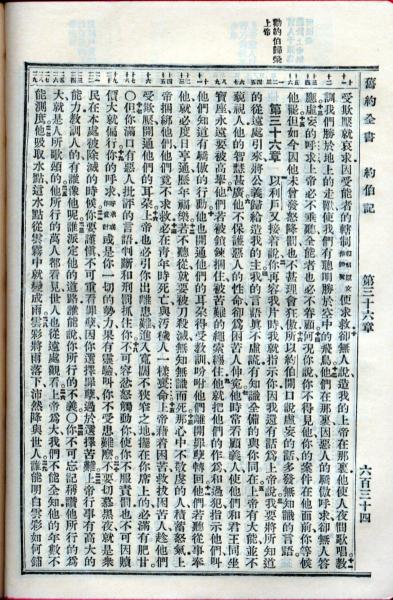 舊約全書 約伯記 第三十六章 六百三十四
受欺壓就哀求因受能者的轄制轄制或作膀臂便求救卻無人說造我的上帝在那裏他使人夜間歌唱教
訓我們勝於地上的走獸使我們有聰明勝於空中的飛鳥他們在那裏因惡人的驕傲呼求卻無人答
應虛妄的呼求上帝必不垂聽全能者也必不眷顧何況你說你不得見他你的案件在他面前你等候
他罷但如今因他未曾發怒降罰也不甚理會狂傲所以約伯開口說虛妄的話多發無知識的言語
第三十六章 以利戶又接着說你再容我片時我就指示你因我還有話爲上帝說我要將所知道
的從遠處引來將公義歸給造我的主我的言語真不虛謊有知識全備的與你同在上帝有大能並不
藐視人他的智慧甚廣他不保護惡人的性命卻爲困苦人伸寃他時常看顧義人使他們和君王同坐
寶座永遠要被高舉他們若被鎖鍊捆住被苦難的繩索纏住他就把他們的作爲和過犯指示他們叫
他們知道有驕傲的行動他也開通他們的耳朵得受教訓吩咐他們離開罪孽轉回他們若聽從事奉
他就必度日亨通歷年福樂若不聽從就要被刀殺滅無知無識而死那心中不敬虔的人積蓄怒氣上
帝捆綁他們他們竟不求救必在青年時死亡與汚穢人一樣喪命上帝藉着困苦救拔困苦人趁他們
受欺壓開通他們的耳朵上帝也必引你出離患難進入寬闊不狹窄之地擺在你席上的必滿有肥甘
〇但你滿口有惡人批評的言語判斷和刑罰抓住你不可容忿怒觸動你使你不服責罰也不可因贖
價大就偏行你的呼求呼求或作資財或是你一切的勢力果有靈驗叫你不受患難麼不要切慕黑夜就是衆
民在本處被除滅的時候你要謹慎不可重看罪孽因你選擇罪孽過於選擇苦難上帝行事有高大的
能力教訓人的有誰像他呢誰派定他的道路誰能說你所行的不義〇你不可忘記稱讚他所行的爲
大就是人所歌頌的他所行的萬人都看見世人也從遠處觀看上帝爲大我們不能全知他的年數不
能測度他吸取水點這水點從雲霧中就變成雨雲彩將雨落下沛然降與世人誰能明白雲彩如何鋪
勸約伯歸榮
上帝